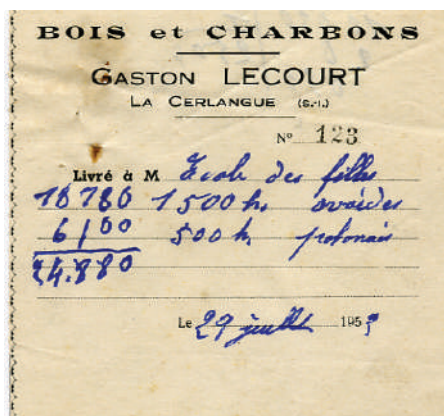 BOIS et CHARBONS
GASTON LECOURT
LA CERLANGUE (S.-I.)
N° 123
Livré à M Ecole des filles
18780 1500 k.
6100 500 k. polonais
24.880
Le 29 juillet 195